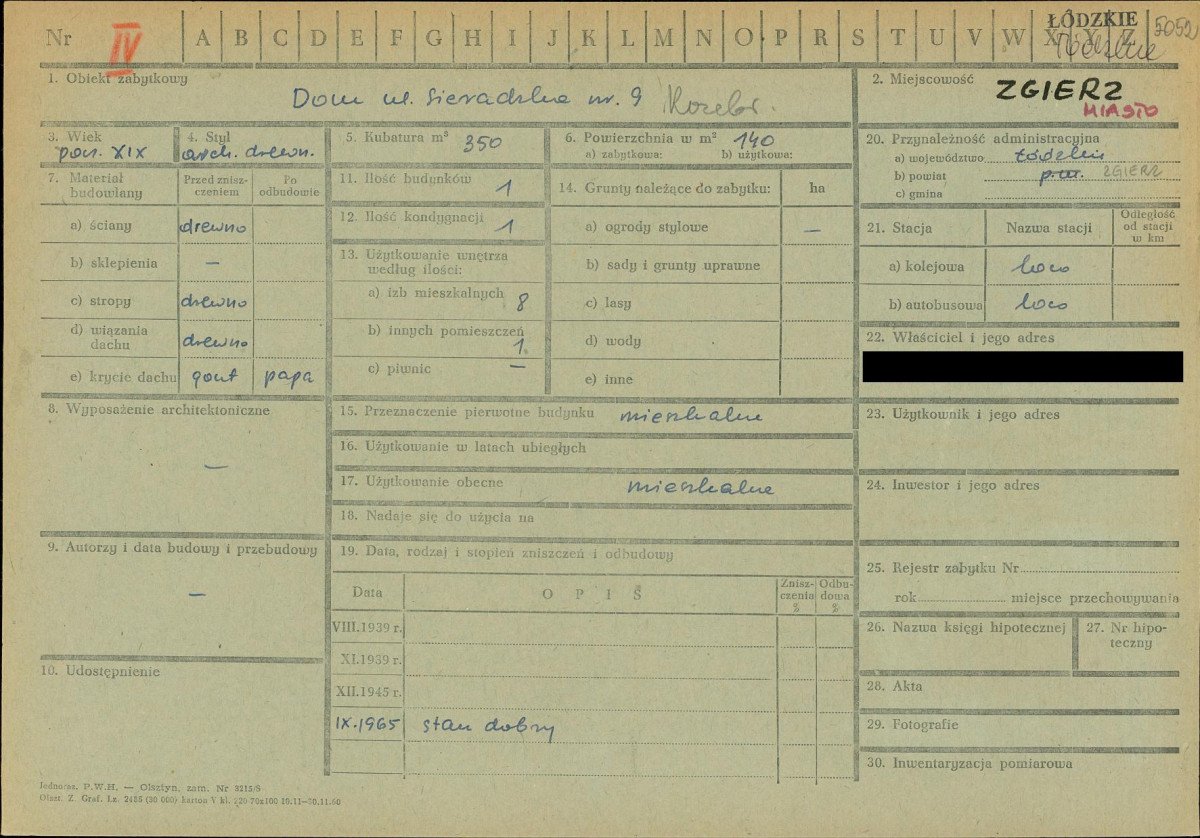 Nr IV A B C D E F G H I J K L M N O P R S T U V W X Y Z ŁÓDZKIE 5052
1. Obiekt zabytkowy
Dom ul. Sieradzka nr. 9
2. Miejscowość ZGIERZ
MIASTO
3. Wiek
poч. XIX
4. Styl
arch. drewn.
5. Kubatura m³ 350
6. Powierzchnia w m² 140
a) zabytkowa: b) użytkowa:
7. Materiał budowlany
Przed zniszczeniem
Po odbudowie
a) ściany drewno
b) sklepienia —
c) stropy drewno
d) wiązania dachu drewno
e) krycie dachu gont papa
8. Wyposażenie architektoniczne
—
9. Autorzy i data budowy i przebudowy
—
10. Udostępnienie
11. Ilość budynków 1
12. Ilość kondygnacji 1
13. Użytkowanie wnętrza
według ilości:
a) izb mieszkalnych 8
b) innych pomieszczeń 1
c) piwnic —
14. Grunty należące do zabytku: ha
a) ogrody stylowe —
b) sady i grunty uprawne
c) lasy
d) wody
e) inne
15. Przeznaczenie pierwotne budynku mieszkalne
16. Użytkowanie w latach ubiegłych
17. Użytkowanie obecne mieszkalne
18. Nadaje się do użycia na
19. Data, rodzaj i stopień zniszczeń i odbudowy
Data O P I S Zniszczenia % Odbudowa %
VIII.1939 r.
XI.1939 r.
XII.1945 r.
IX.1965 stan dobry
20. Przynależność administracyjna
a) województwo łódzkie
b) powiat p.m. ZGIERZ
c) gmina
21. Stacja Nazwa stacji Odległość od stacji w km
a) kolejowa loco
b) autobusowa loco
22. Właściciel i jego adres
23. Użytkownik i jego adres
24. Inwestor i jego adres
25. Rejestr zabytku Nr
rok miejsce przechowywania
26. Nazwa księgi hipotecznej
27. Nr hipoteczny
28. Akta
29. Fotografie
30. Inwentaryzacja pomiarowa
Jednoraz. P.W.H. — Olsztyn, zam. Nr 3215/S
Olszt. Z. Graf. Lz. 2455 (30 000) karton V kl. 220 70x100 10.11—30.11.60